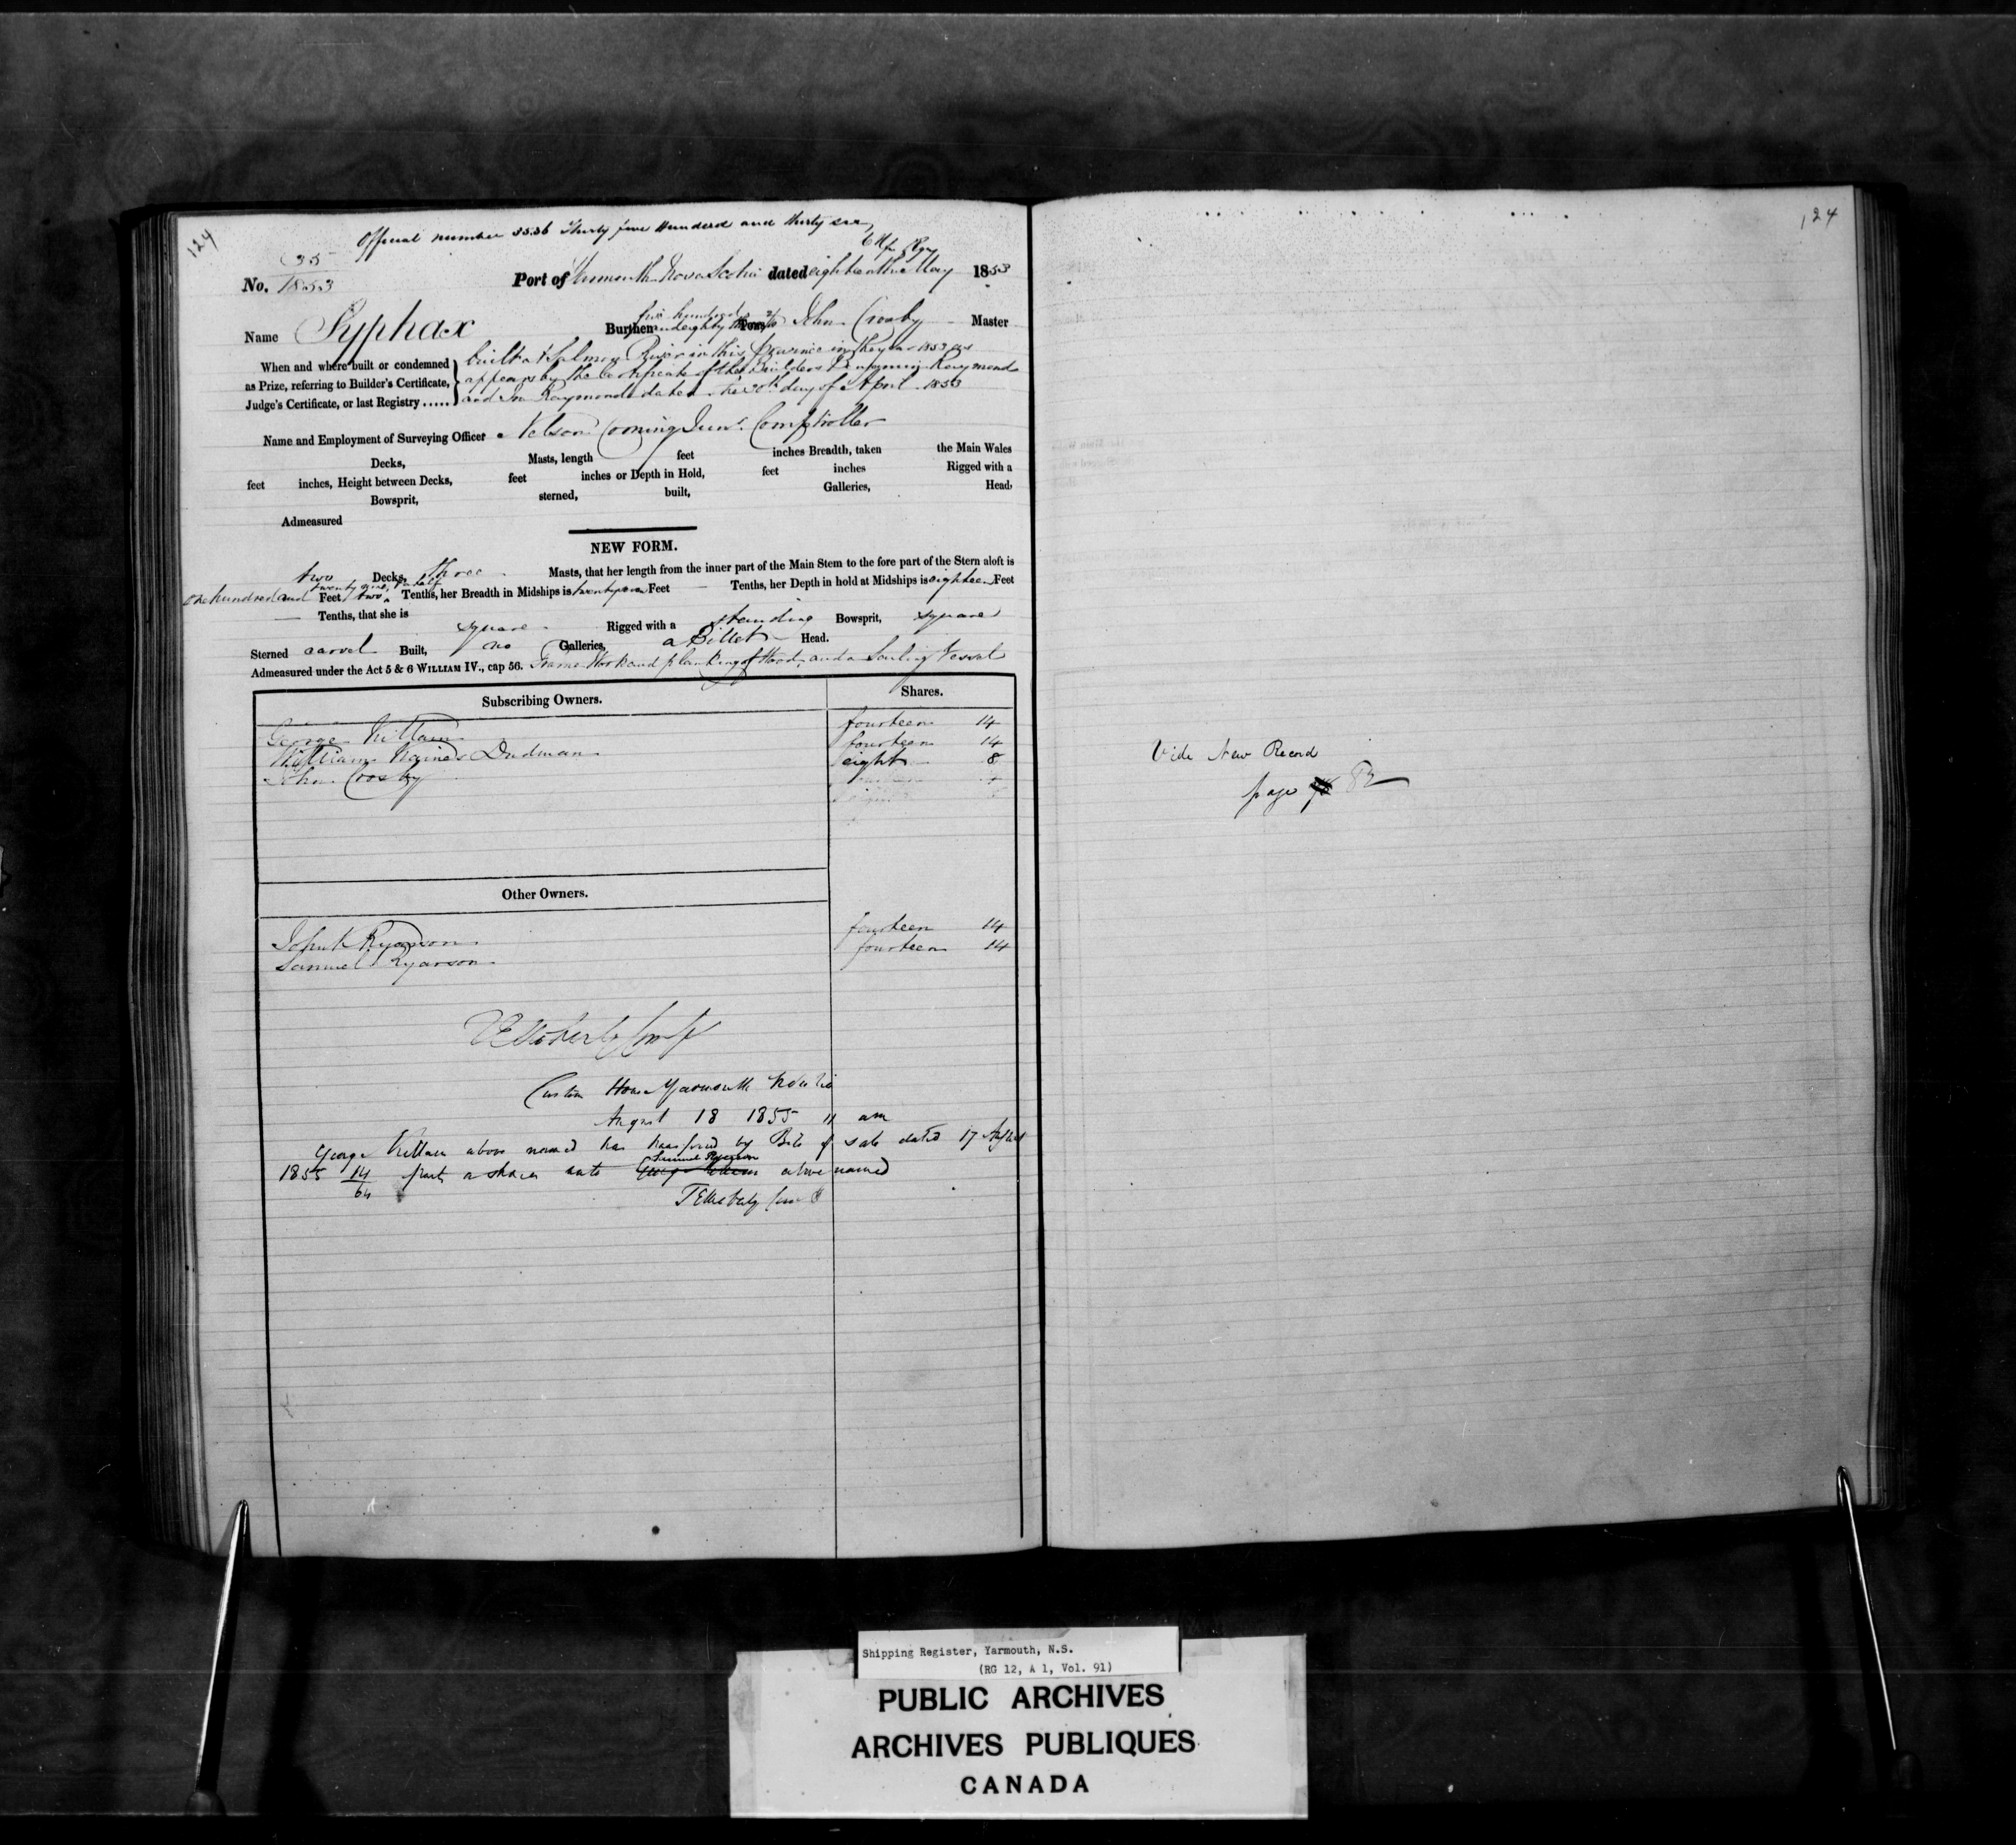 124
Official number 3536 Thirty five Hundred and thirty six
No. 35
1853
Port of Yarmouth Nova Scotia dated eighteenth May 1853
Name Syphax Burthen five hundred and eighty Tons John Crosby Master
When and where built or condemned
as Prize, referring to Builder's Certificate,
Judge's Certificate, or last Registry .....
built at Salmon River in this province in the year 1853 as
appears by the Certificate of the Builders Benjamin Raymond
and Raymond dated the 30th day of April 1853
Name and Employment of Surveying Officer Nelson Corning Junr. Comptroller
Decks, Masts, length feet inches Breadth, taken the Main Wales
feet inches, Height between Decks, feet inches or Depth in Hold, feet inches Rigged with a
Bowsprit, sterned, built, Galleries, Head,
Admeasured
NEW FORM.
two Decks, three Masts, that her length from the inner part of the Main Stem to the fore part of the Stern aloft is
one hundred and Feet Tenths, her Breadth in Midships is Feet — Tenths, her Depth in hold at Midships is eighteen Feet
— Tenths, that she is square Rigged with a standing Bowsprit, square
Sterned carvel Built, no Galleries, a Billet Head.
Admeasured under the Act 5 & 6 WILLIAM IV., cap 56. Frame Work and planking of Wood, and a Sailing Vessel
Subscribing Owners. Shares.
George Killam fourteen 14
William Haines Dudman fourteen 14
John Crosby eight 8
Other Owners.
John K Ryerson fourteen 14
Samuel Ryerson fourteen 14
Custom House Yarmouth
August 18 1855 11 am
George Killam above named has transfered by Bill of sale dated 17 August
1855 14/64 parts or shares unto Samuel Ryerson above named
124
Vide New Record
page 82
Shipping Register, Yarmouth, N.S.
(RG 12, A 1, Vol. 91)
PUBLIC ARCHIVES
ARCHIVES PUBLIQUES
CANADA